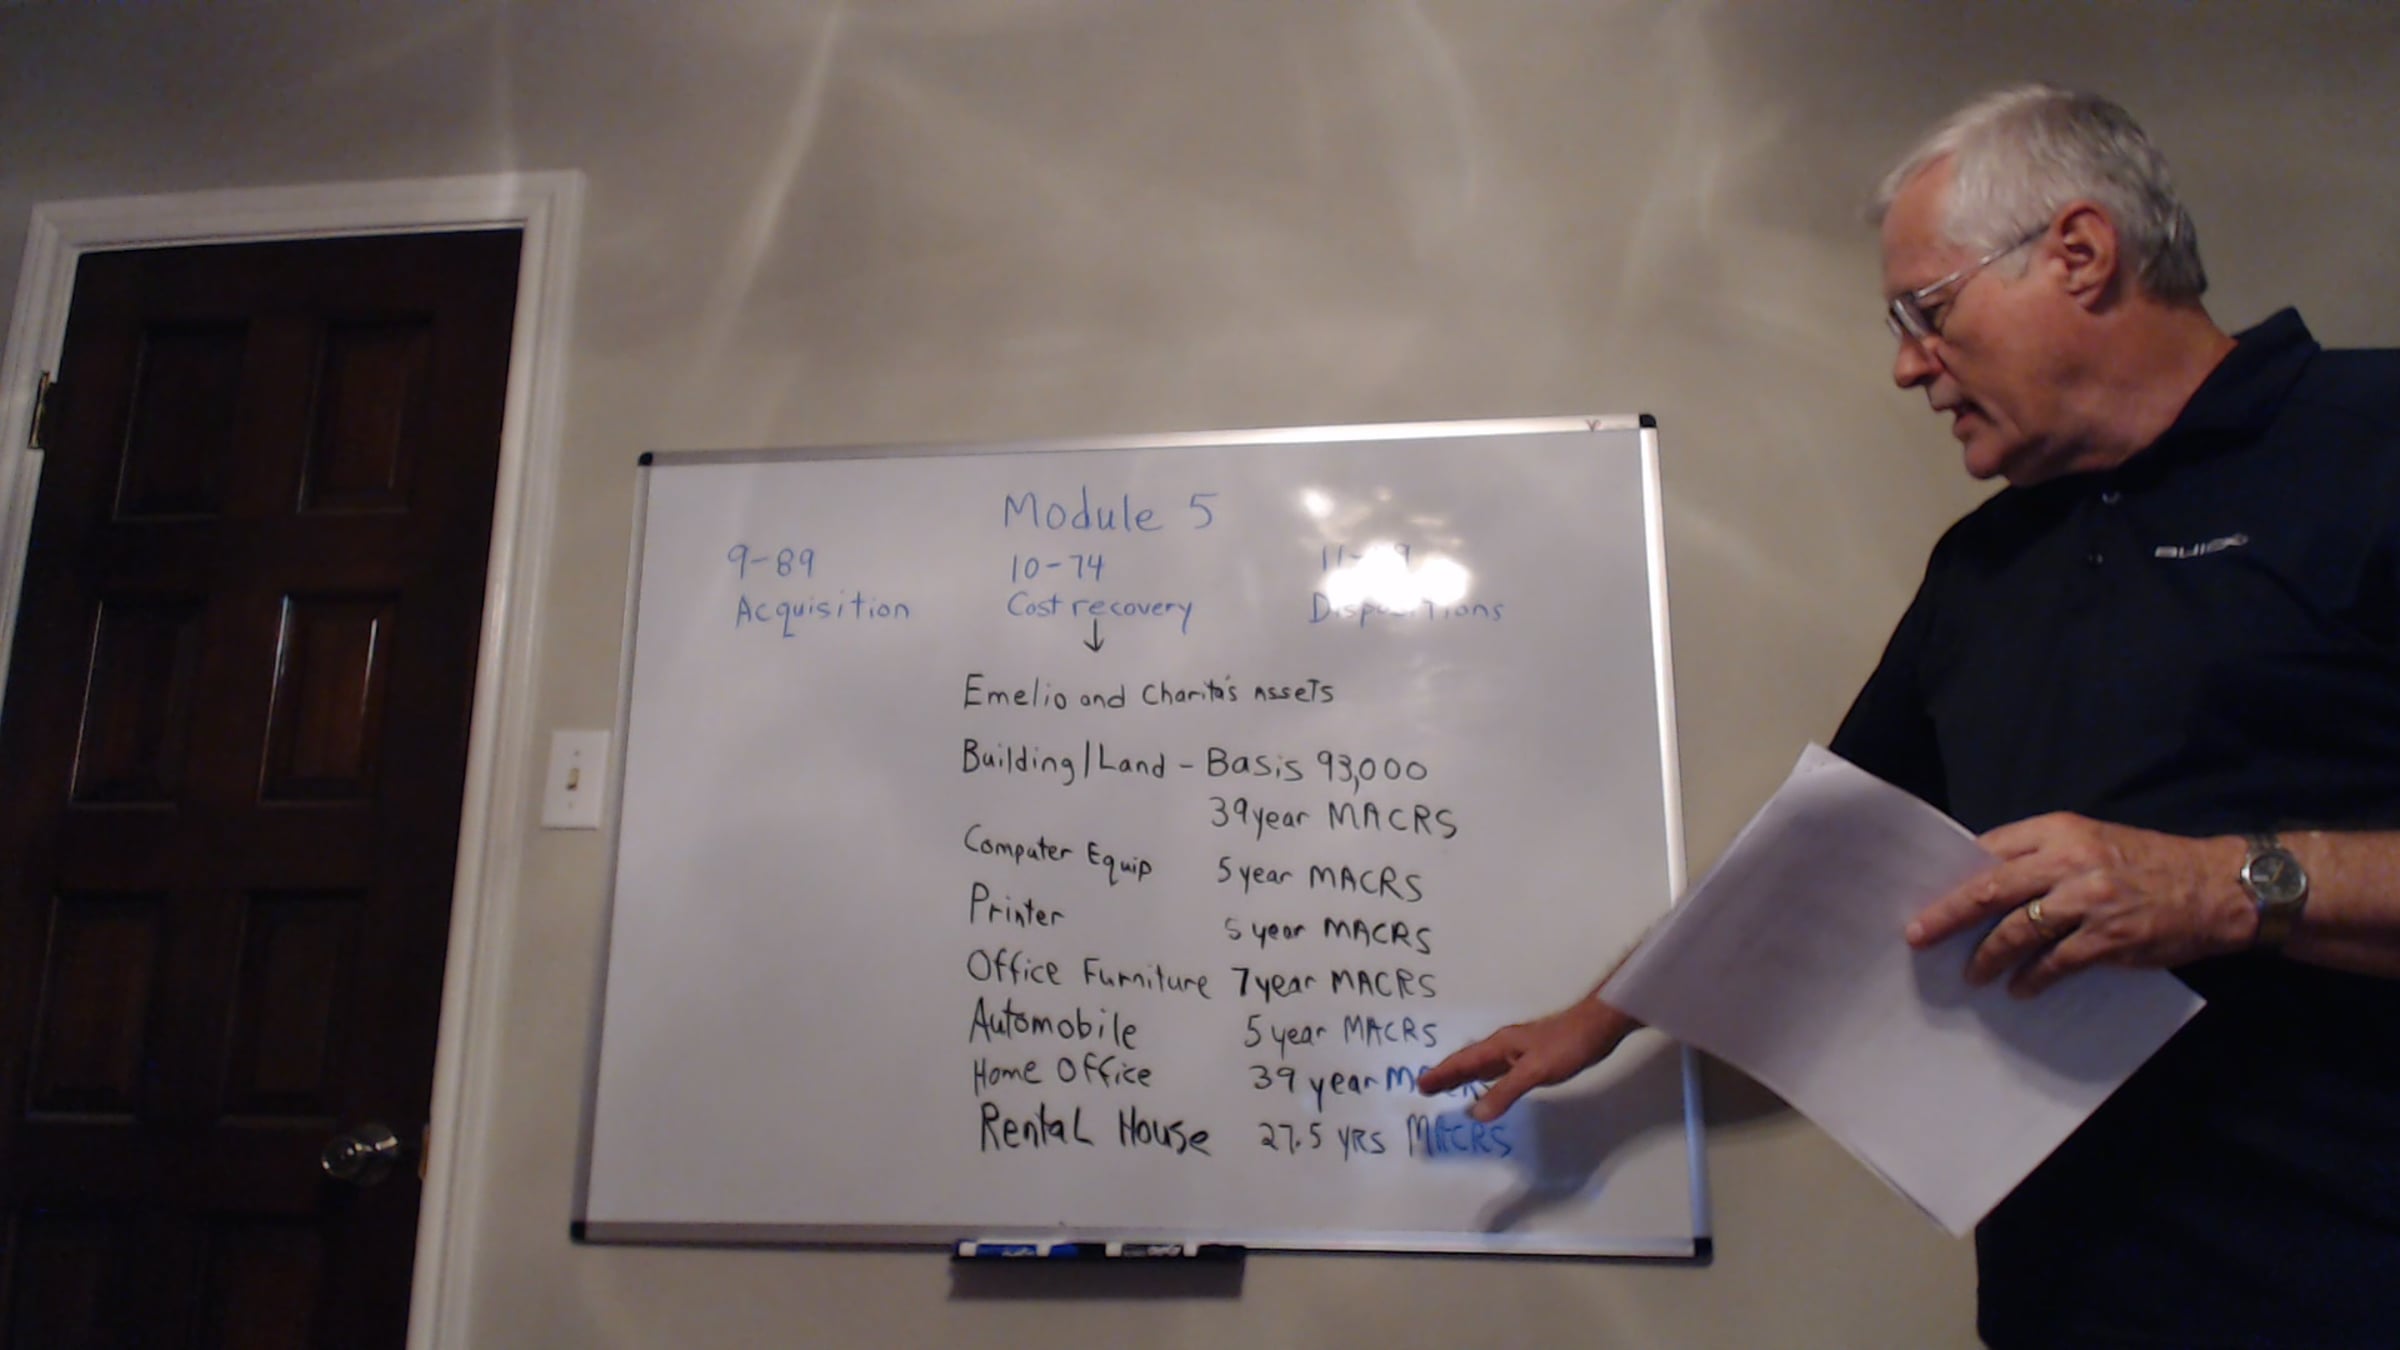 Module 5
9-89 10-74
Acquisition Cost recovery Dispositions
↓
Emelio and Charita's Assets
Building/Land - Basis 93,000
39 year MACRS
Computer Equip 5 year MACRS
Printer 5 year MACRS
Office Furniture 7 year MACRS
Automobile 5 year MACRS
Home Office 39 year
Rental House 27.5 YRS MACRS
BUICK